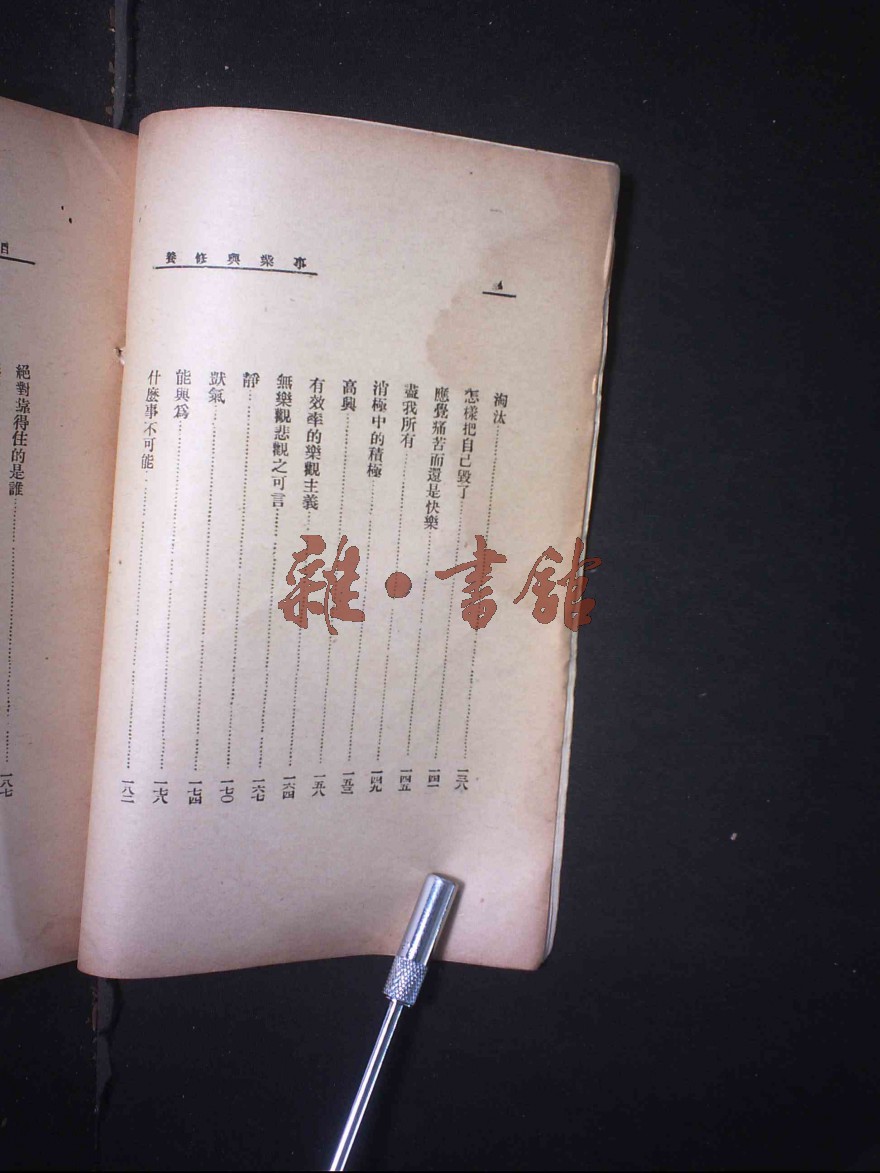 事業與修養
淘汰……一三八
怎樣把自己毀了……一四一
應覺痛苦而還是快樂……一四五
盡我所有……一四九
消極中的積極……一五三
高興……一五八
有效率的樂觀主義……一六四
無樂觀悲觀之可言……一六七
靜……一七〇
獃氣……一七四
能與爲……一七八
什麽事不可能……一八二
目
絕對靠得住的是誰……一八七
雜·書館